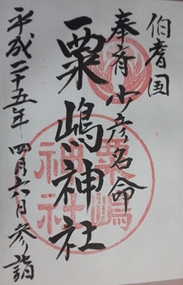 伯耆国
奉斎 少彦名命
粟嶋神社
平成二十五年 四月六日 参詣
粟嶋
神社